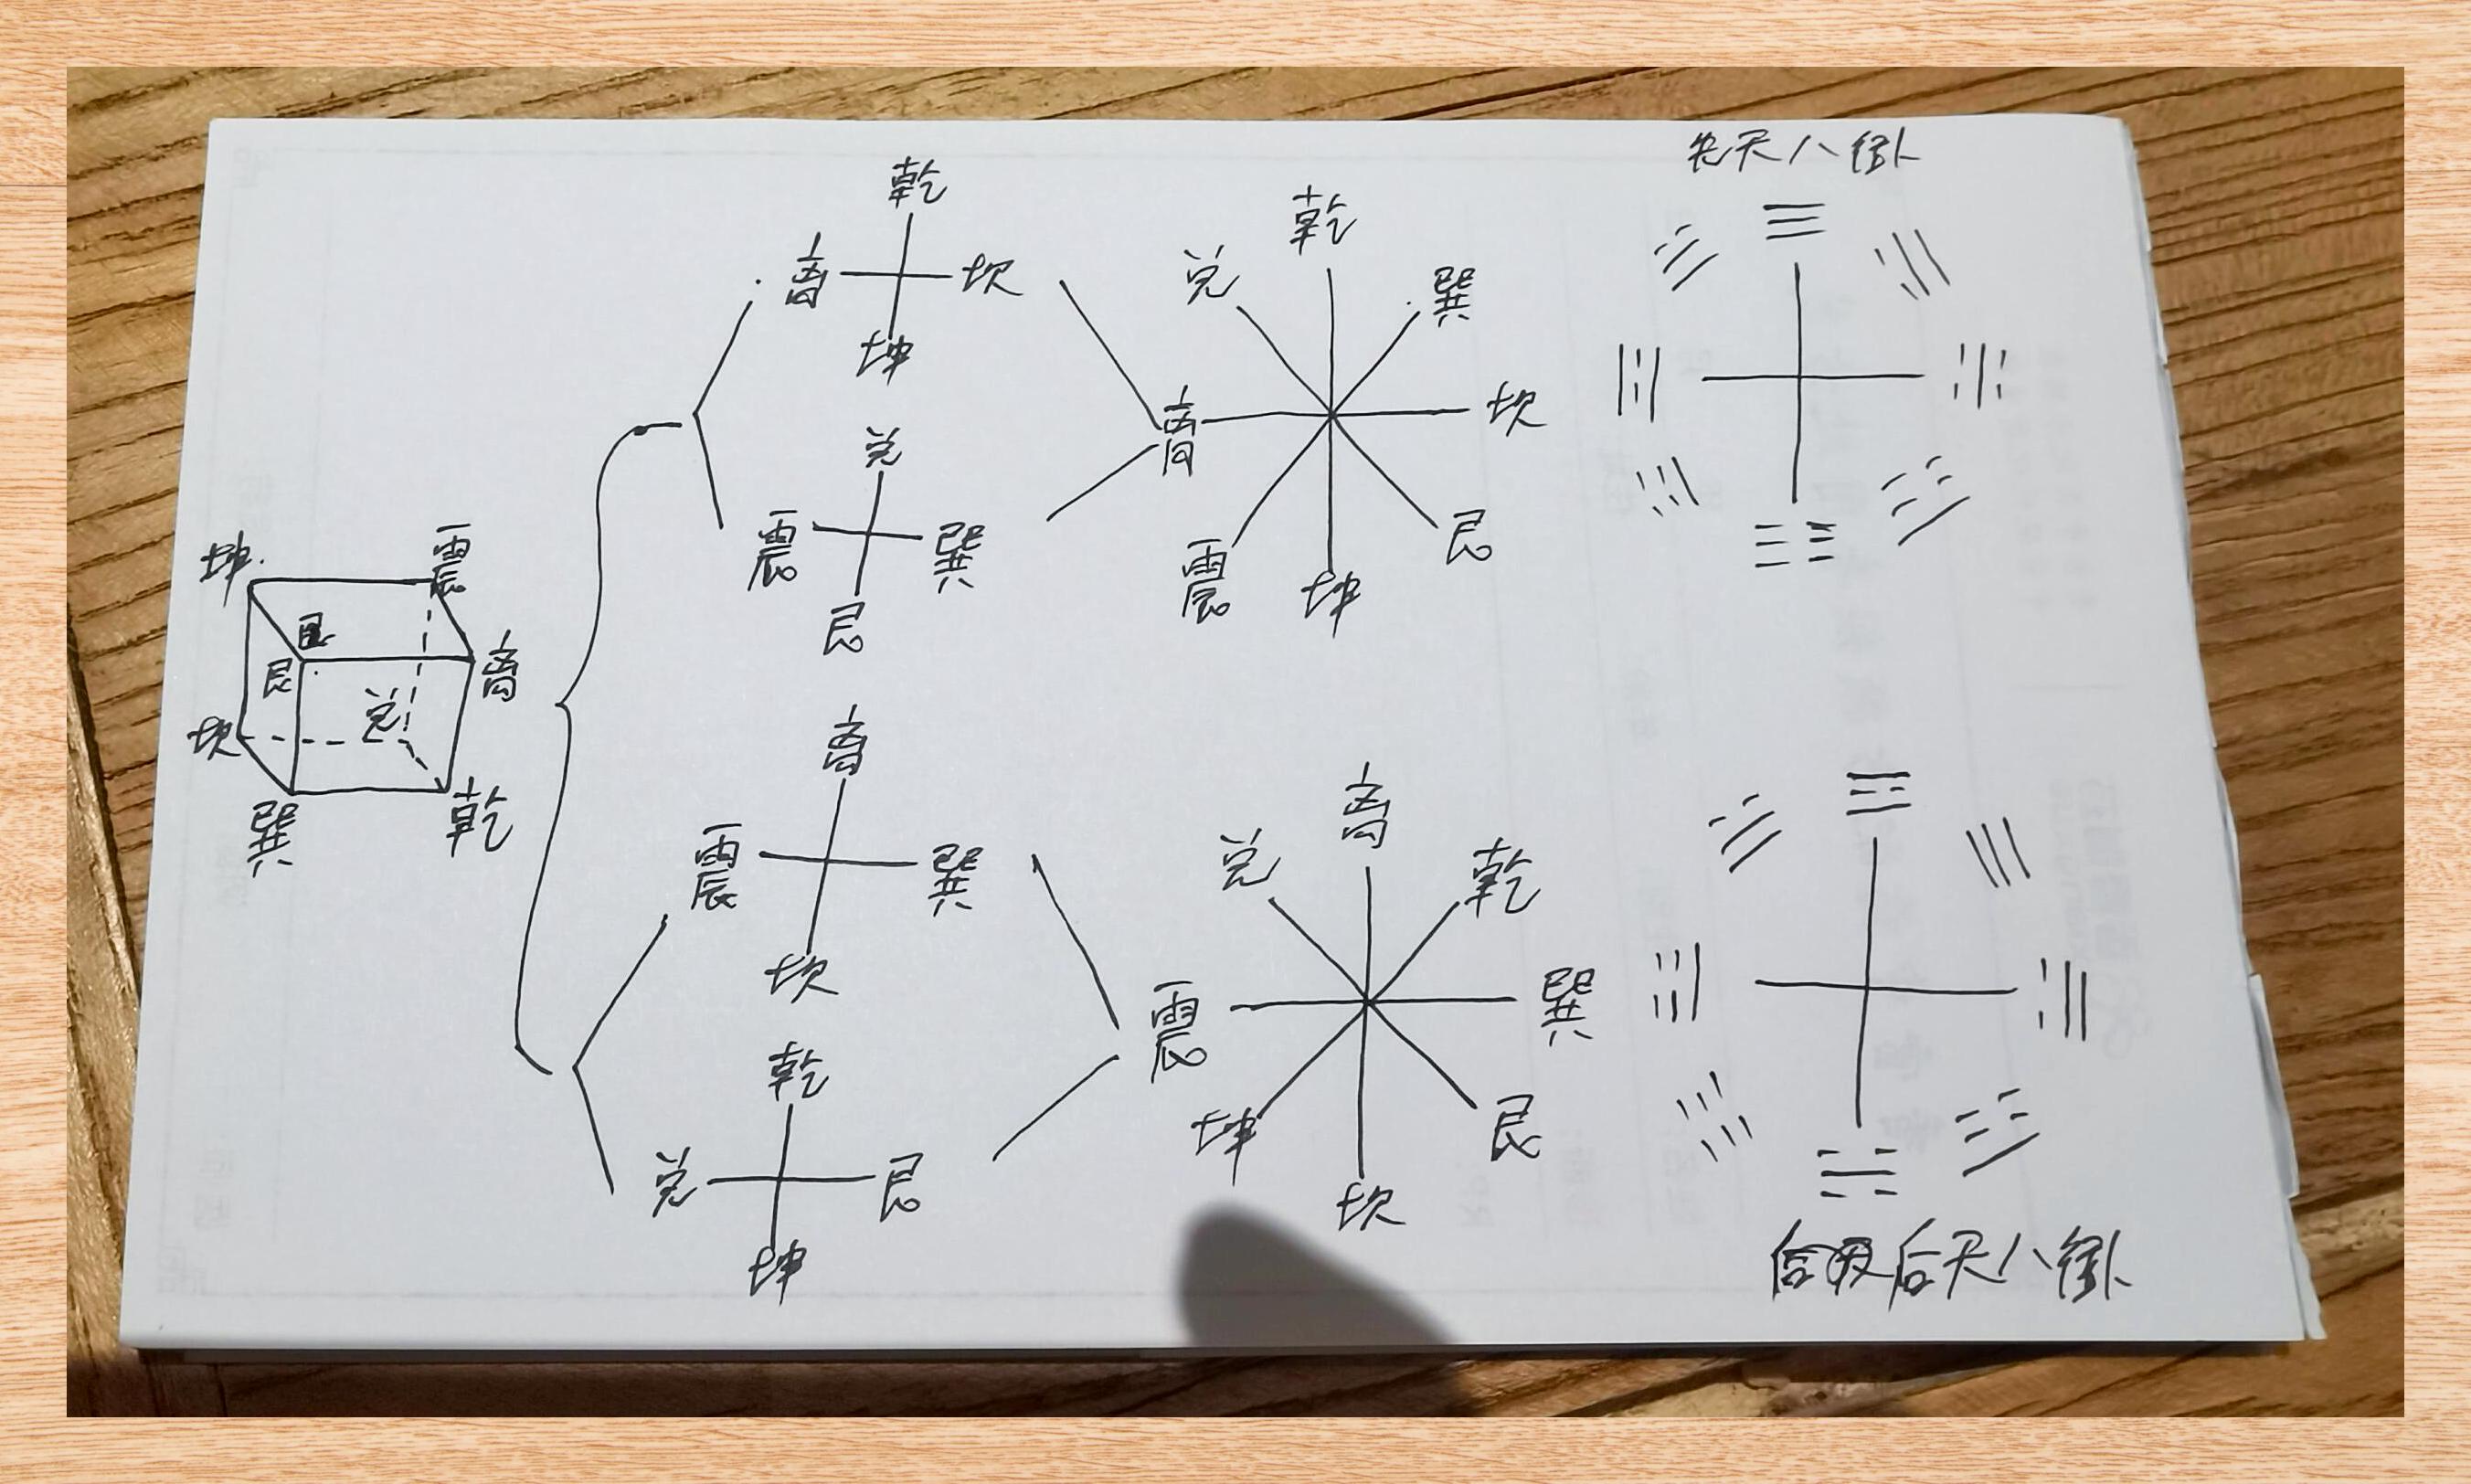 先天八卦
乾
离 坎
坤
兑
震 巽
艮
乾
兑 巽
离 坎
震 艮
坤
坤 震
艮
艮 离
兑
坎
巽 乾
离
震 巽
坎
乾
兑 艮
坤
离
兑 乾
震 巽
坤 艮
坎
后天八卦